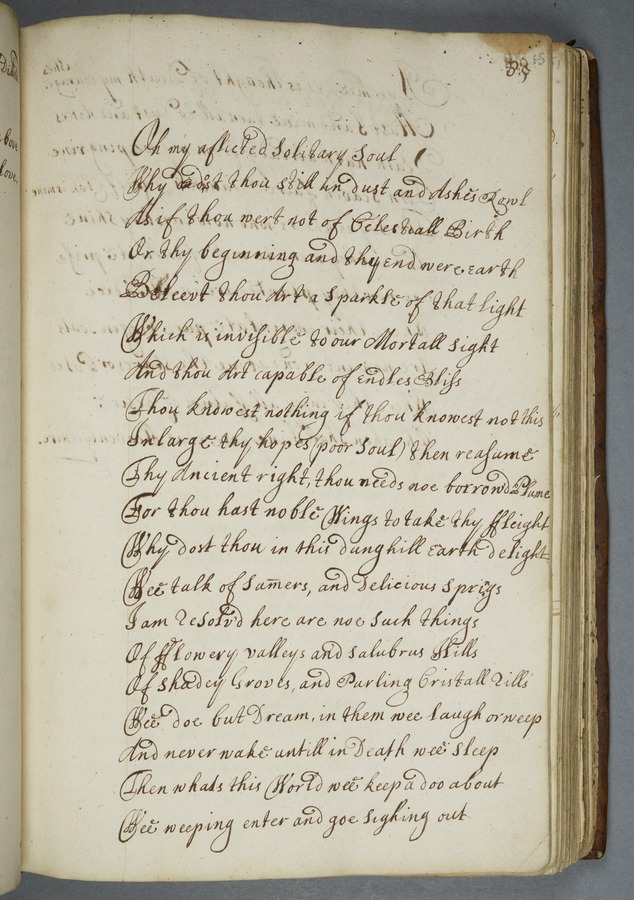 Oh my aflicted Solitary Soul
Why dost thou still in dust and Ashes Rowl
As if thou wert not of Celestiall Birth
Or thy beginning and thy end were earth
Beleevt thou Art a Sparkle of that light
Which is invisible to our Mortall Sight
And thou Art capable of endles Bliss
Thou knowest nothing if thou knowest not this
Inlarge thy hopes (poor Soul) then reasume
Thy Ancient right, thou needs noe borrowd Plume
For thou hast noble Wings to take thy ffleight
Why dost thou in this dunghill earth delight
Wee talk of Sūmers, and Delicious Sprigs
I am resolv'd here are noe Such things
Of fflowery valleys and Salubrus Hills
Of Shadey Groves, and Purling Cristall rills
Wee doe but Dream, in them wee laugh or weep
And never wake untill in Death wee Sleep
Then whats this World wee keep a doo about
Wee weeping enter and goe Sighing out